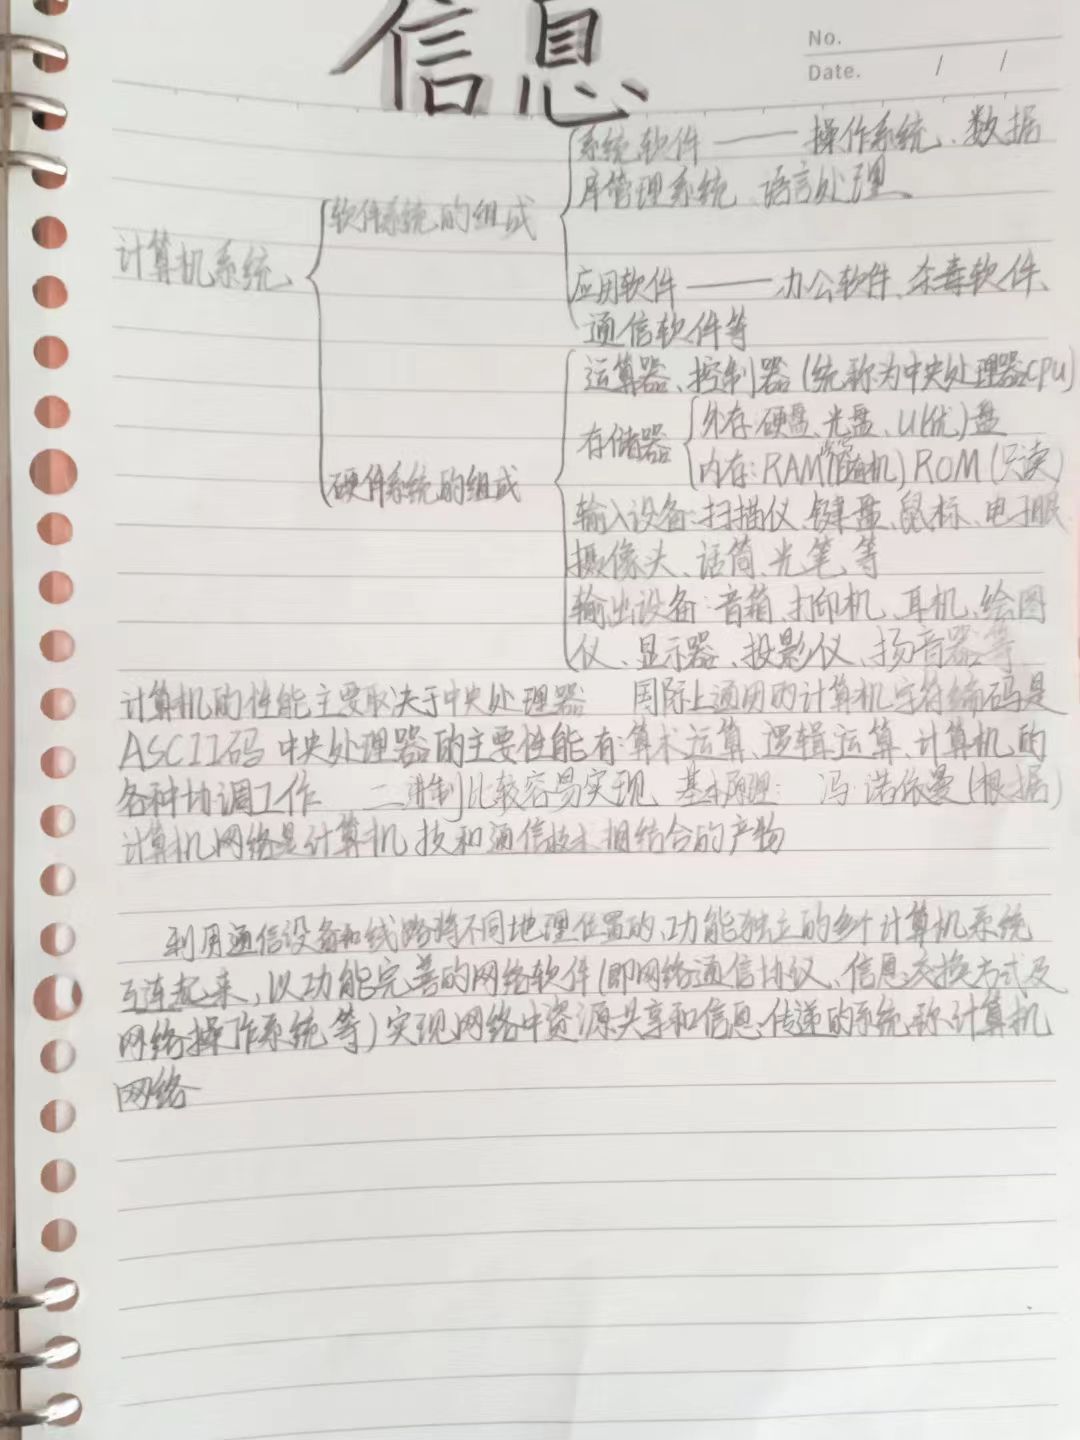 信息
No.
Date. / /
系统软件 —— 操作系统、数据
库管理系统、语言处理、
软件系统的组成
计算机系统、
应用软件 —— 办公软件、杀毒软件、
通信软件等
运算器、控制器(统称为中央处理器CPU)
存储器
外存:硬盘、光盘、U(优)盘
内存:RAM(随机)ROM(只读)
硬件系统的组成
输入设备:扫描仪、键盘、鼠标、电子眼
摄像头、话筒、光笔、等
输出设备:音箱、打印机、耳机、绘图
仪、显示器、投影仪、扬音器等
计算机的性能主要取决于中央处理器 国际上通用的计算机字符编码是
ASCII码 中央处理器的主要性能有:算术运算、逻辑运算、计算机的
各种协调工作 二进制比较容易实现 基本原理: 冯·诺依曼(根据)
计算机网络是计算机技和通信技术相结合的产物
利用通信设备和线路将不同地理位置的、功能独立的多个计算机系统
互连起来,以功能完善的网络软件(即网络通信协议、信息交换方式及
网络操作系统等)实现网络中资源共享和信息传递的系统,称计算机
网络